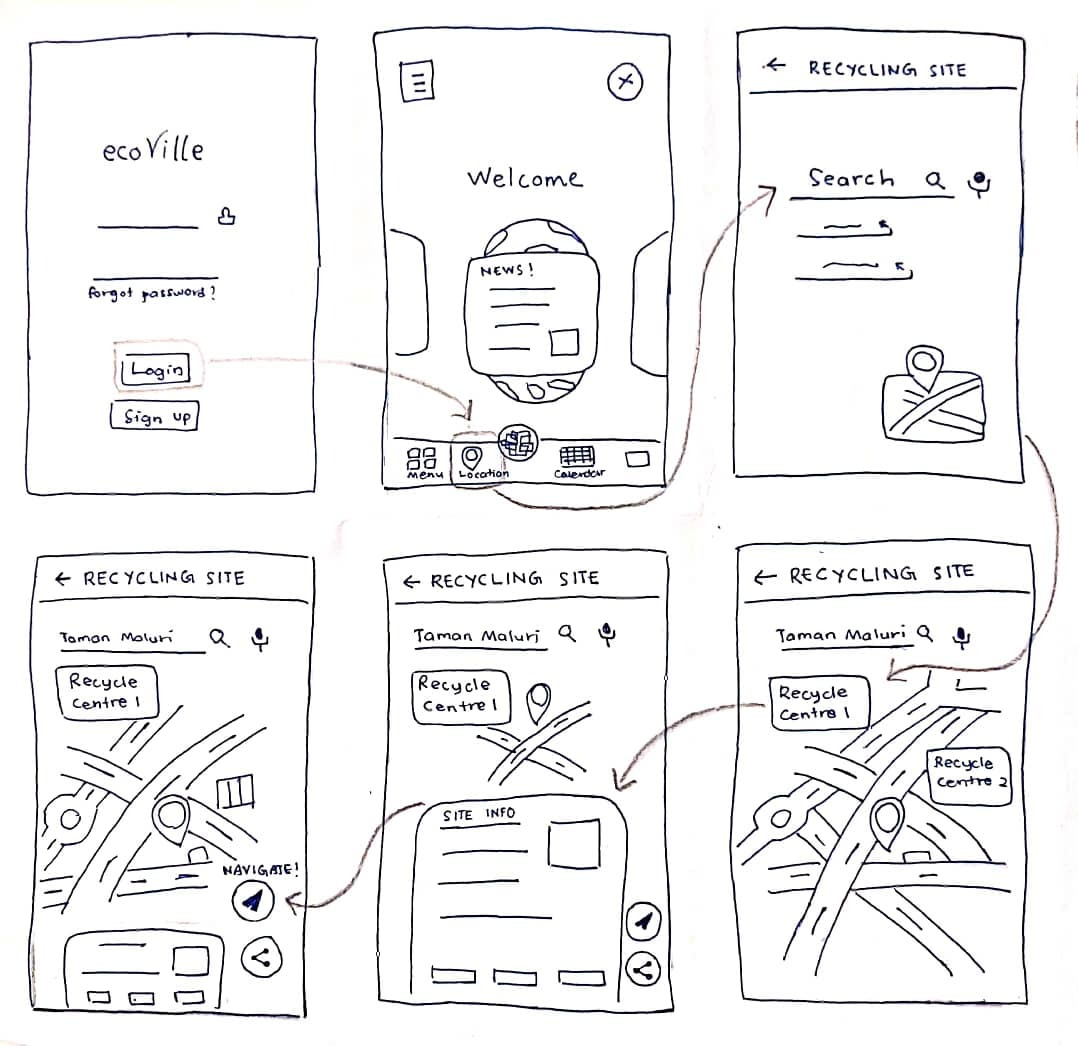 ecoVille
forgot password?
Login
Sign up
Welcome
NEWS!
Menu
Location
Calendar
← RECYCLING SITE
Search
← RECYCLING SITE
Taman Maluri
Recycle
Centre 1
NAVIGATE!
← RECYCLING SITE
Taman Maluri
Recycle
Centre 1
SITE INFO
← RECYCLING SITE
Taman Maluri
Recycle
Centre 1
Recycle
Centre 2